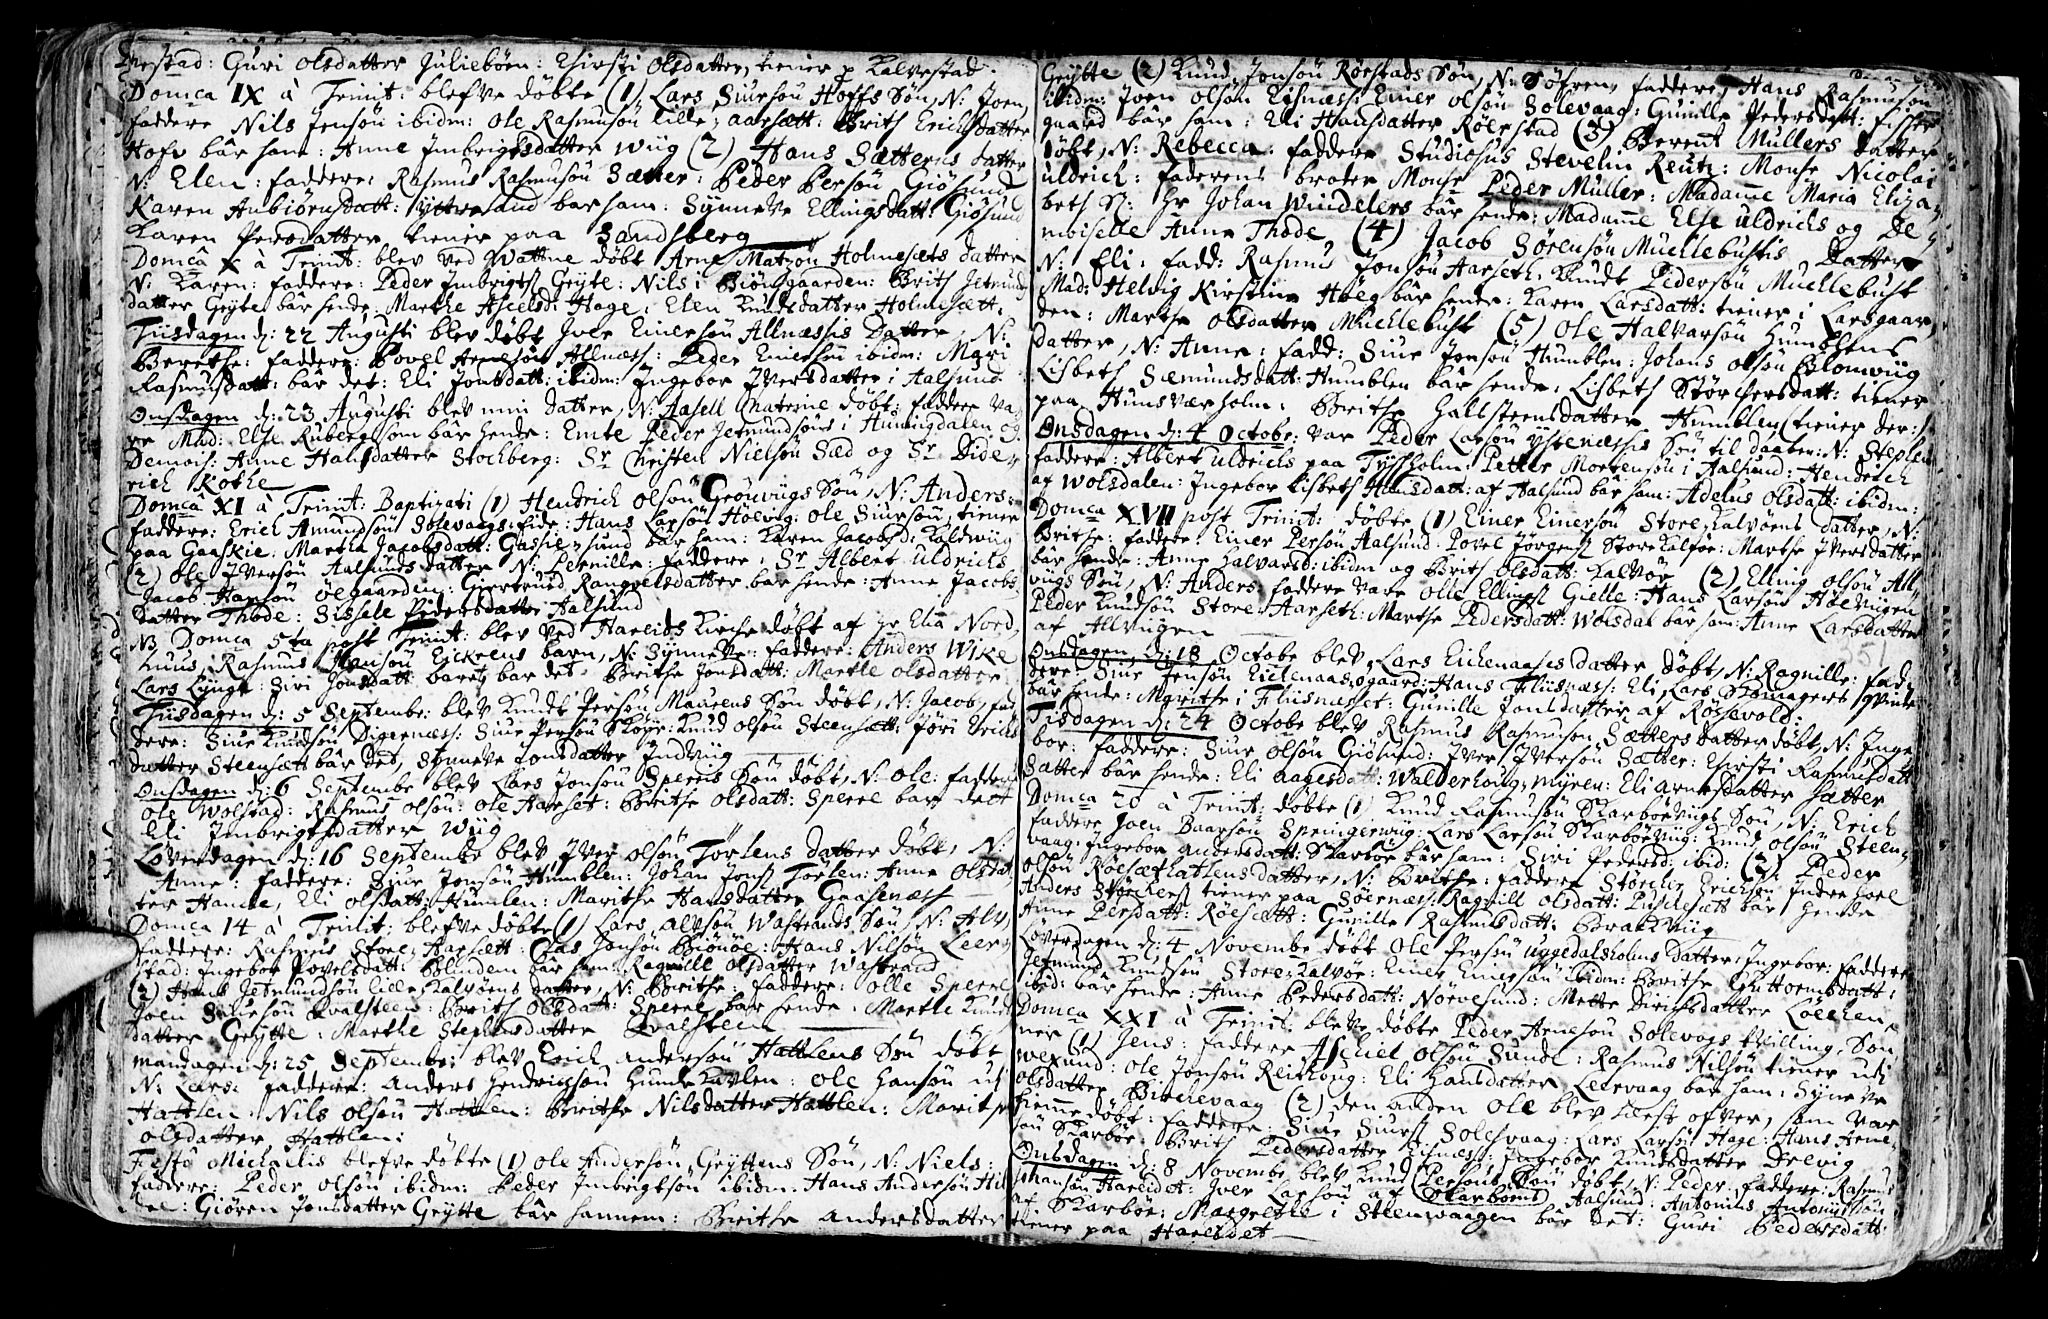 Guri Olsdatter Juliebøen: Chirsti Olsdatter, tiener p Kalvestad.
Domca IX à Trinit: blefve døbte (1) Lars Siursøn Hoffs Søn, N: Joen,
faddere Nils Jensøn ibidm: Ole Rasmusøn lille-aarsætt: Brith Erichsdatter
Hofv bar ham: Anne Imbrigtsdatter Wiig (2) Hans Sætterns datter
N: Elen: faddere: Rasmus Rasmusøn Sætter: Peder Persøn Giøsund
Karen Anbiørnsdatt: Ytterland bar ham: Synneve Ellingsdatt: Giøsund
Karen Persdatter tiener paa Sandsberg
Domca X à Trinit: blev ved Wattne døbt Arne Matzøn Holmesets datter
N: Karen: faddere: Peder Imbrigts Grytte: Nils i Biørsgaarden: Brith Jetmunds
datter Grytte bar hende: Marthe Hage: Elen Knudsdatter Holmesætt.
Tiisdagen d: 22 Augusti blev døbt Iver Einersøn Allnæsses Datter, N:
Berethe: faddere: Povel Arnesøn Allnæss: Peder Einersøn ibidm: Mari
Rasmusdatt: bar det: Eli Jonsdatt: ibidm: Ingebor Iversdatter i Aalsund
Onsdagen d: 23 Augusti blev min datter, N: Aasell Chatrine døbt: faddere va-
re Mad: Else Ruberg som bar hende: Emte Peder Jetmundsøns i Humigdalen og
Demois: Anne Hansdatter Stochberg: Sr Christen Nielsøn Sæd og Sr Dide-
rich Kothe
Domca XI à Trinit: Baptizati (1) Hendrich Olsøn Grønviigs Søn, N: Anders:
faddere: Erich Amundsøn Solevaags: Hans Larsøn Høevig: Ole Siursøn, tiener
paa Gaaskie: Martha Jacobsdatt: Gassie-sund bar ham: Karen Jacobsd: Kaldwiig
(2) Ole Iversøn Aalsunds datter N: Pernille: faddere, Sr Albert Uldrichs
Jacob Hansøn Øegaarden: Giertruud Rangvelsdatter bar hende: Anne Jacobs
datter Thode: Sissele Pedersdatter Aalsund
NB Domca 5ta post Trinit: blev ved Hareids Kirche døbt af Hr Elia Nord-
huus, Rasmus Hansøn Eickrens barn, N: Synneve: faddere: Anders Wike
Lars Lynge: Siri Jonsdatt: bar det: Brithe Jonsdatt: Marthe Olsdatter
Tiisdagen d: 5 Septembe: blev Knudt Persøn Maurens Søn døbt, N: Jacob, fad
dere: Siur Knudsøn Digernæss: Siur Persøn: Knud Olsøn Steensætt: Jøri Erichs
datter Steensætt bar det, Synneve Jonsdatter Indviig
Onsdagen d: 6 Septembe blev Lars Jonsøn Sperris Søn døbt, N: Ole: faddere
Ole Wolstad: Rasmus Olsøn: Ole Aarset: Brithe Olsdatt: Sperre bar det
Eli Imbrigtsdatter Wiig
Løverdagen d: 16 Septembe blev Iver Olsøn Torlens datter døbt, N:
Anne: faddere: Siur Jonsøn Humblen: Johan Jons Torlen: Anne Olsdat
ter Hande, Eli Olsdatt: Humlen: Marithe Hansdatter Gaasenæss
Domca 14 à Trinit: blefve døbte (1) Lars Alvsøn Wastrands Søn, N: Alv,
faddere: Rasmus Store-Aarsett: Clas Jonsøn Biønøe: Hans Nilsøn Leer-
stad: Ingebor Povelsdatt: Blindem bar ham: Ragnille Olsdatter Wastrand
(2) Hans Jetmundsøn lille Kalvøens datter, N: Brithe: faddere: Olle Sperre
Joen Siursøn Qvalsteen: Brith Olsdatt: Sperre bar hende: Marthe Knuds
datter Grytte: Marthe Stephensdatter Qvalsteen
Mandagen d: 25 Septembe: blev Erich Andersøn Hattlens Søn døbt
N: Lars: faddere: Anders Hendrichsøn Hunde: Ole Hansøn ud
Hattlen: Nils Olsøn Hattlen: Brithe Nilsdatter Hattlen: Marithe
Olsdatter, Hattlen:
Festo Michaelis blefve døbte (1) Ole Andersøn Gryttens Søn, N: Niels:
faddere: Peder Olsøn ibidm: Peder Imbrigtsøn ibidm: Hans Andersøn
Giøren Jonsdatter Grytte bar hannem: Brithe Andersdatter
Grytte (2) Knud Jonsøn Rørstads Søn, N: Søfren, faddere, Hans Rasmusøn
ibidm: Joen Olsøn Eisnæss: Einer Olsøn Solevaag: Gunille Pedersdatt: Fisker
gaard bar ham: Eli Hansdatter Røerstad (3) Berent Mullers datter
døbt, N: Rebecca: faddere Studiosus Stevelin Reutz: Monsr Nicolai
Uldrich: faderens broder Monsr Peder Müller: Madame Maria Eliza-
beth S: Hr Johan Windelers bar hende: Madame Else Uldrichs og De-
moiselle Anne Thode (4) Jacob Sørensøn Muchlebusts Datter
N: Eli: fadd: Rasmus Jonsøn Aarseth: Knudt Pedersøn Muchlebust
Mad: Helvig Kirstine Høeg bar hende: Karen Larsdatt: tiener i Larsgaar-
den: Marthe Olsdatter Muchlebust (5) Ole Halvarsøn Humblens
datter, N: Anne: fadd: Siur Jonsøn Humblen: Johans Olsøn Blomviig
Lisbeth Sæmundsdatt: Humblen bar hende: Lisbeth Størchersdatt: tiener
paa Hunsværholm: Brithe Hallsteensdatter Humblen (tiener der:)
Onsdagen d: 4 Octobe: var Peder Larsøn Ystenæsses Søn til daaben: N: Stephen
faddere: Albert Uldrichs paa Tyssholm: Petter Mortensøn i Aalsund: Hendrich
af Wolsdalen: Ingebor Lisbeth Hansdatt: af Aalsund bar ham: Adelus Olsdatt: ibidm:
Domca XVII post Trinit: døbte (1) Einer Einersøn Store Kalvøens datter, N:
Brithe: faddere Einer Persøn Aalsund: Povel Jørgens Store Kalvøe: Marthe Iversdatter
bar hende: Anne Halvarsd: ibidm og Brith Olsdatt: Kalvøe (2) Elling Olsøn All-
vigs Søn, N: Anders faddere vare Olle Ellings Gielle: Hans Larsøn Høevigen
Peder Knudsøn Store-Aarseth: Marthe Pedersdatt: Wolsdal bar ham: Anne Larsdatter
af Alvigen
Onsdagen d: 18 Octobe blev Lars Eichenaases datter døbt, N: Ragnille: fad-
dere: Siur Jensøn Eichenaas-øgaard: Hans Fliisnæss: Eli Lars Skomagers qvinde
bar hende: Marithe i Fliisnæsset: Gunille Jonsdatter af Røssevold:
Tisdagen d: 24 Octobe blev Rasmus Rasmusøn Sætters datter døbt, N: Inge-
bor: faddere: Siur Olsøn Giøsund: Iver Iversøn Sætter: Chirsti Rasmusdatt
Sætter bar hende: Eli Aagesdatt: Walderhoug-myren: Eli Arnesdatter Sætter
Domca 20 à Trinit: døbte (1) Knud Rasmusøn Skarbøevigs Søn, N: Erich
faddere Joen Baarsøn Springerwiig: Lars Larsøn Skarbøeviig: Knud Olsøn Steen-
vaag: Ingebor Andersdatt: Skarbøe bar ham: Siri Pedersd: ibid: (2) Peder
Olsøn Røesæthatlens datter, N: Brithe: faddere Størcher Erichsøn Indre hoel
Anders Størckers tiener paa Søernæss: Ragnill Olsdatt: bar hende
Anne Persdatt: Røesætt: Gunille Rasmusdatt: Brandsviig
Løverdagen d: 4 Novembe døbt Ole Persøn Uggedalsholms datter: Ingebor: faddere
Jetmund Knudsøn Store-Kalvøe: Einer Einersøn ibidm: Brithe Guttormsdatt:
ibid: bar hende: Anne Pedersdatt: Nørvesund: Mette Dirichsdatter Løechen
Domca XXI à Trinit: bleve døbte Peder Arnesøn Solevogs tvilling, Søn
ner (1) Jens: faddere Aschiel Olsøn Sunde: Rasmus Nilsøn tiener udi
Wexund: Ole Jonsøn Reithoug: Eli Hansdatter Leervaag bar ham: Syneve
Olsdatter (2) den anden Ole blev læst ofver, som var
hiemmedøbt: faddere: Siur Siurs Solesvaag: Lars Larsøn Hage: Hans Arne-
søn Skarbøe: Brith Pedersdatter Eisnæss: Ingebor Knudsdatter Drevig
Onsdagen d: 8 Novembe blev Knud Persøns Søn døbt, N: Peder: faddere: Rasmus
Johansøn Hareidet: Iver Larsøn af Skarboens Aalsund: Antonius Antoniisøn
af Skarboe: Margrethe i Steenvaagen bar det: Guri Pedersdatt:
tiener paa Hareidet
351